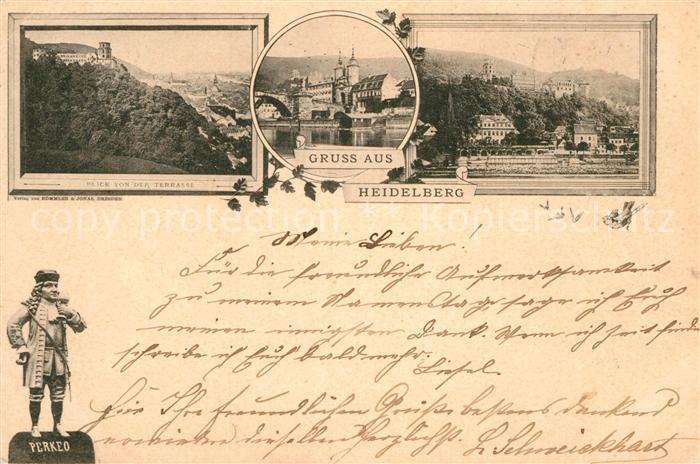 BLICK VON DER TERRASSE
GRUSS AUS
HEIDELBERG
Verlag von RÖMMLER & JONAS, DRESDEN
copyright protection picturescript
Meine Lieben!
Für die freundliche Aufmerksamkeit
zu meinem Namenstage, sage ich Euch
meinen innigsten Dank. Wenn ich Zeit finde
schreibe ich Euch bald mehr.
Liesel.
Für Ihre freundlichen Grüße bestens dankend
erwiedere dieselben herzlichst. L. Schweickhart
PERKEO